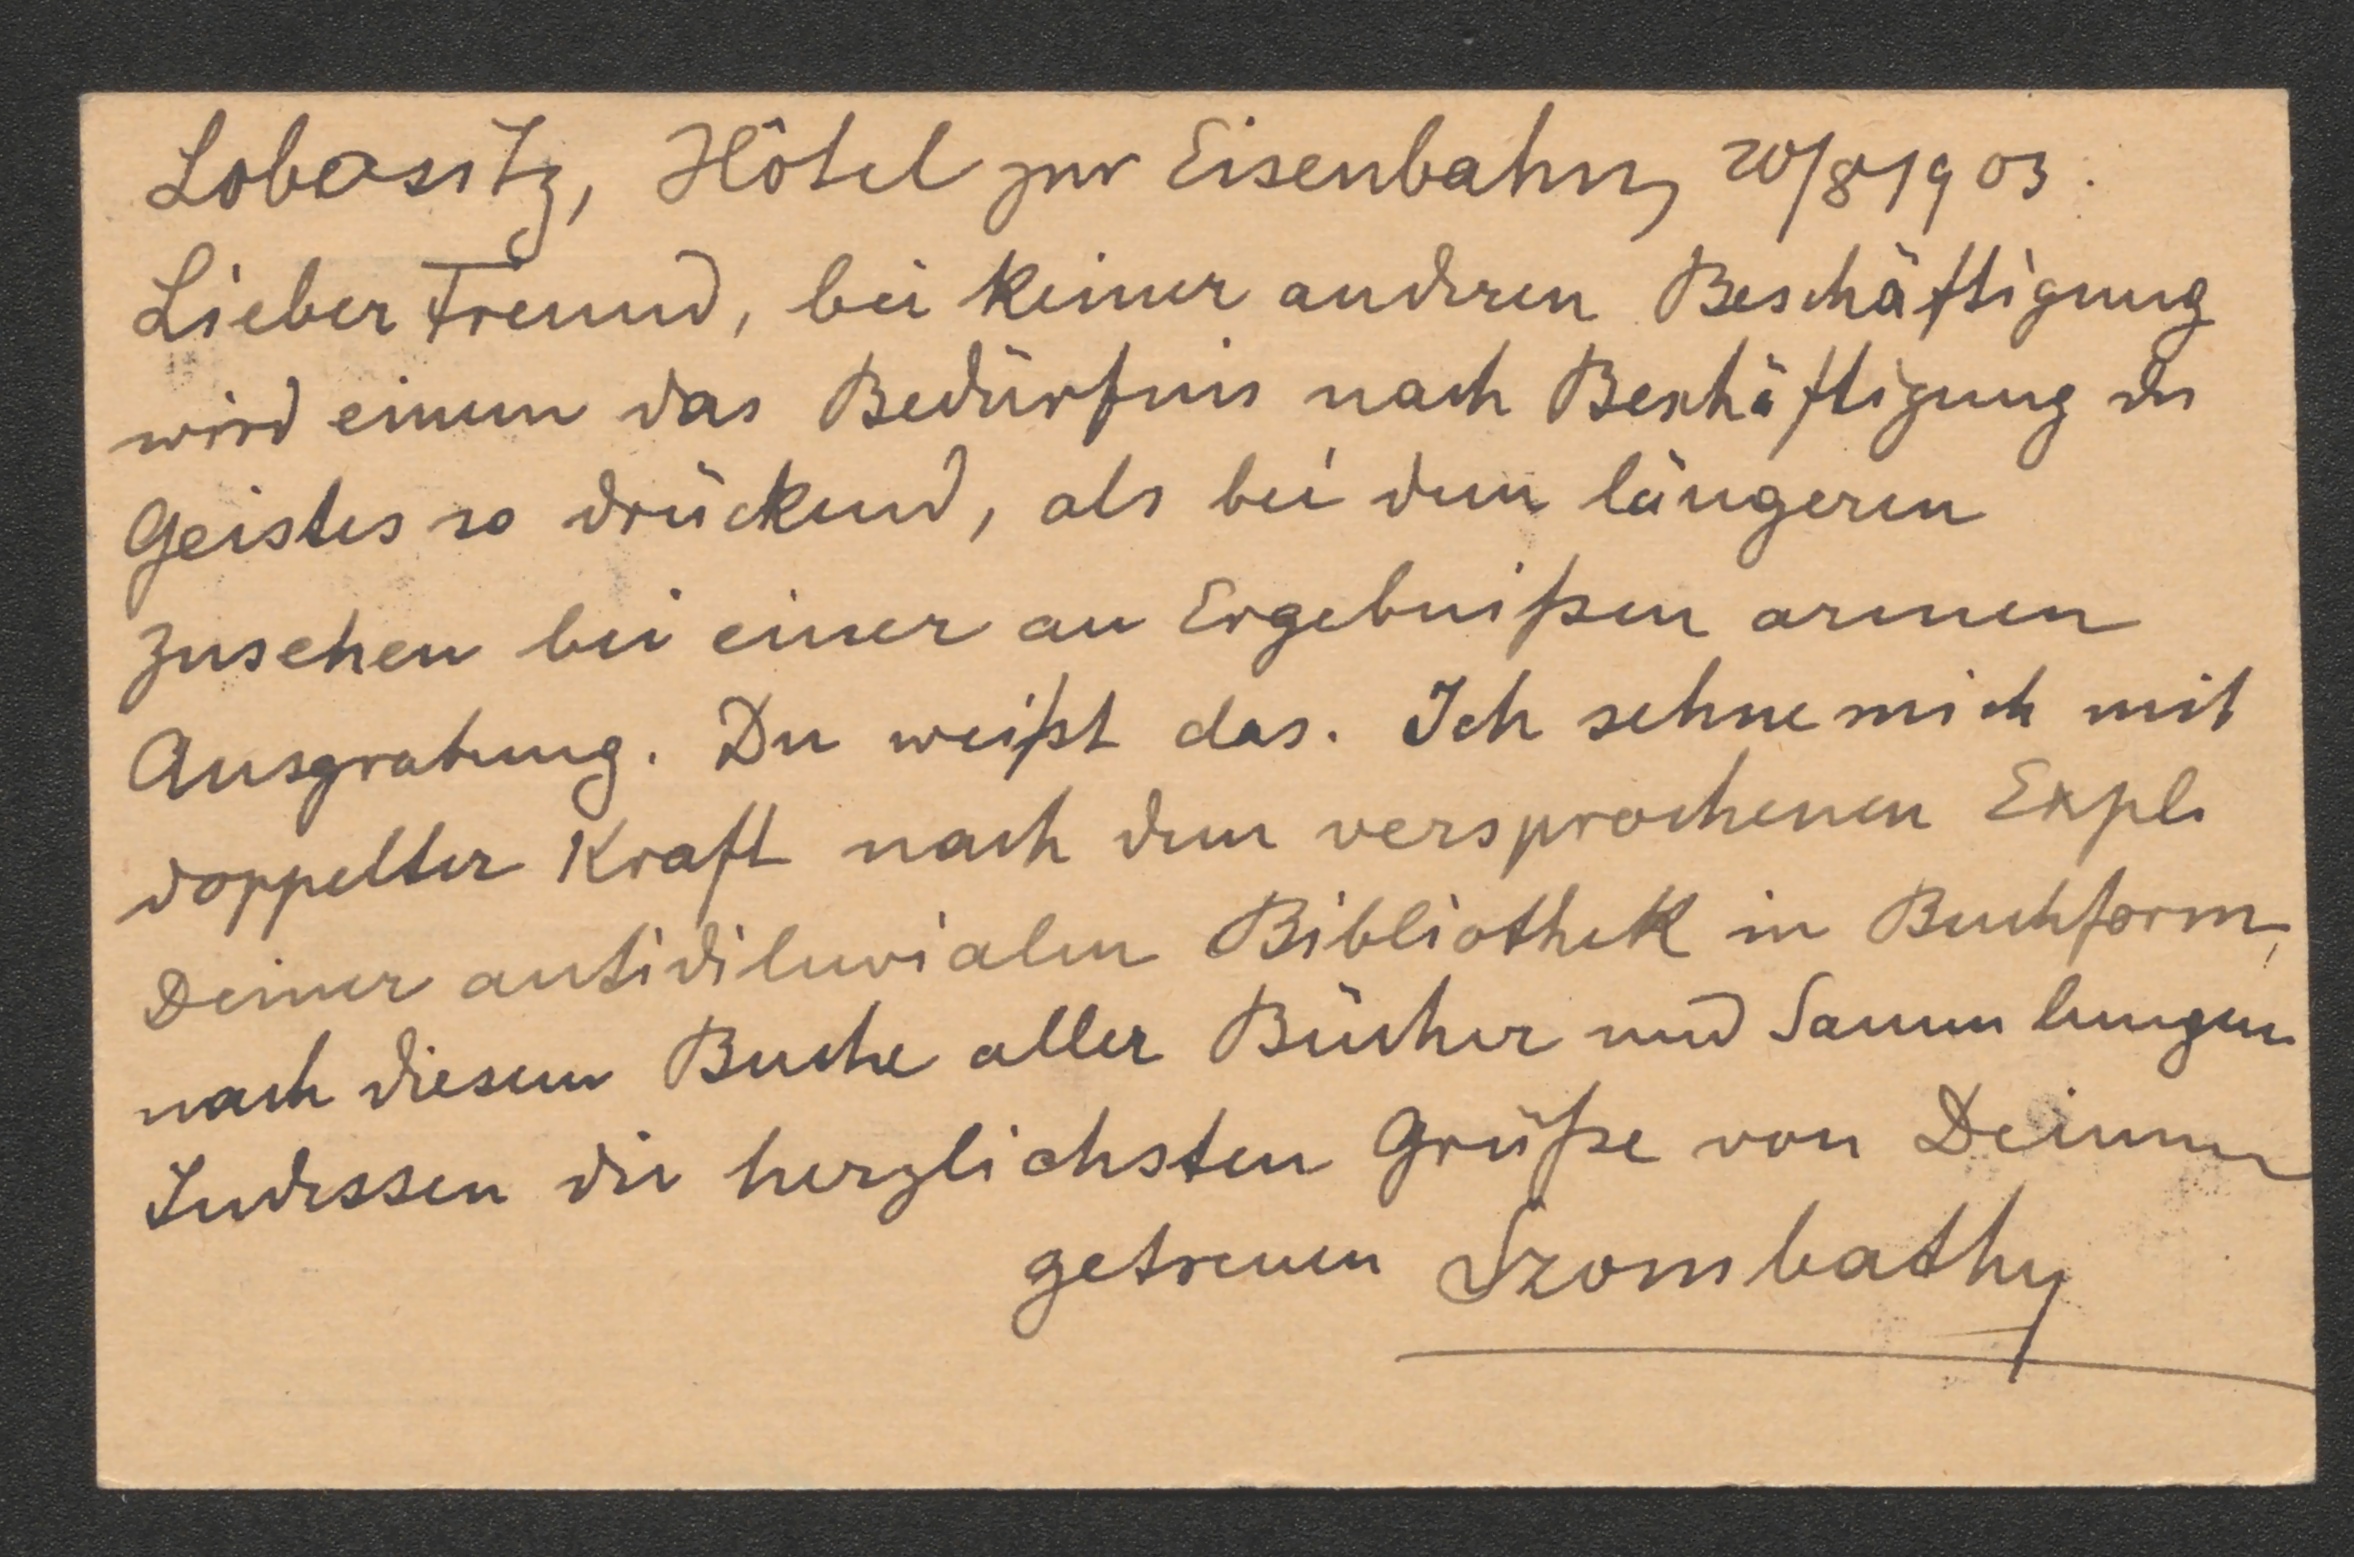 Lobositz, Hôtel zur Eisenbahn, 20/8 1903.
Lieber Freund, bei keiner anderen Beschäftigung
wird einem das Bedürfnis nach Beschäftigung des
Geistes so drückend, als bei dem längeren
Zusehen bei einer an Ergebnißen armen
Ausgrabung. Du weißt das. Ich sehne mich mit
doppelter Kraft nach dem versprochenen Expl.
Deiner antidiluvialen Bibliothek in Buchform,
nach diesem Buche aller Bücher und Sammlungen.
Indessen die herzlichsten Grüße von Deinem
getreuen Szombathy